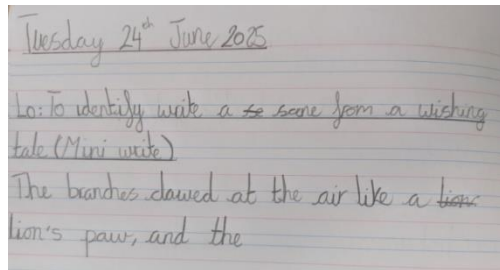 Tuesday 24th June 2025
Lo: To identify write a se scene from a wishing
tale (Mini write)
The branches clawed at the air like a lion
lion's paw, and the